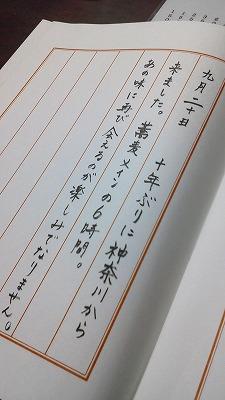 九月二十日
十年ぶりに神奈川から
来ました。蕎麦メインの6時間。
あの味に再び会えるのが楽しみでなりません。